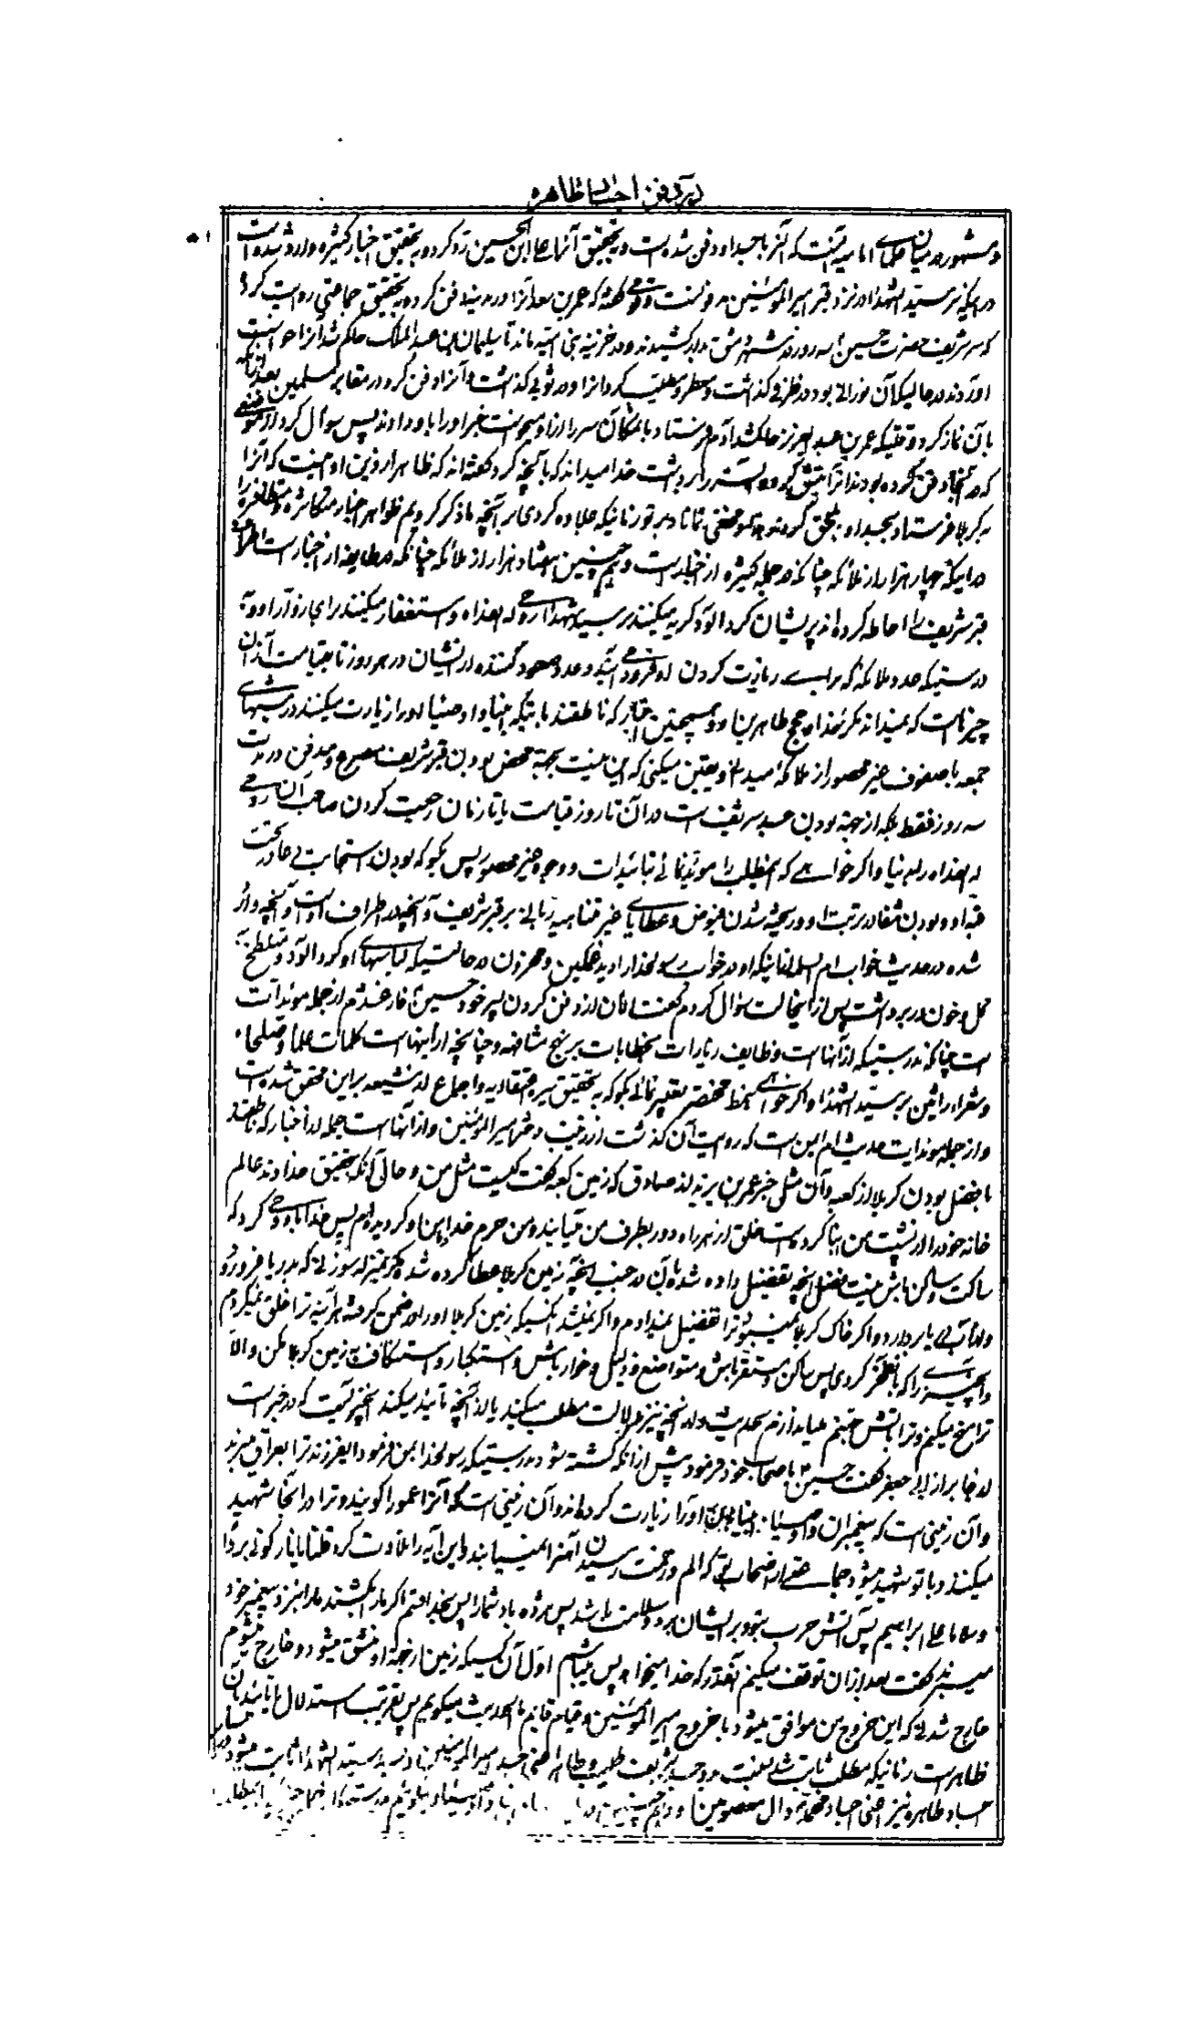 در دفن اجساد طاهره
و مشهور در میان علمای امامیه آنست که آنرا با جسد او دفن شده است و بتحقیق آنرا علی ابن الحسین رد کرده و بتحقیق اخبار کثیره وارد شده است
در اینکه سر سید الشهدا در نزد قبر امیر المؤمنین مدفونست و قومی گفته که عمر بن سعد آنرا در مدینه دفن کرده و بتحقیق جماعتی روایت کرده
که سر شریف حضرت حسین سه روز در شهر دمشق بدار کشیدند و در خزینه بنی امیه ماند تا سلیمان بن عبد الملک حاکم شد آنرا خواست
آوردند در حالیکه آن نورانی بود در ظرفی گذاشت و معطر و مطیب کرد آنرا و در ثوبی گذاشت و آنرا دفن کرد در مقابر مسلمین بعد از آنکه
بآن نماز کرد وقتیکه عمر بن عبد العزیز حاکم شد آدم فرستاد بامکان سر را از او میخواست خبر او را باو دادند پس سوال کرد از موضعی
که در آنجا دفن کرده بودند آنرا نبش کرده سر را برداشت خدا میداند که بآنچه کرد گفته اند که ظاهر از دین او اینست که آنرا
بکربلا فرستاد و بجسد او ملحق کردند و مخفی نماند بر تو زمانیکه علاوه کردی بر آنچه ما ذکر کردیم ظواهر اخبار متکاثره متظافره را
در اینکه چهار هزار از ملائکه چنانکه در جمله کثیره از اخبار است و همچنین هفتاد هزار از ملائکه چنانکه در طایفه از اخبار است اطراف
قبر شریف را احاطه کرده اند پریشان گرد آلود گریه میکنند بر سید الشهدا روحی له الفداء و استغفار میکنند برای زوار او و
بدرستیکه عدد ملائکه که برای زیارت کردن او فرود می آیند و عدد صعود کننده از ایشان در هر روز تا بقیامت از آن
چیزهاست که نمیداند مگر خدا و حجج طاهرین او و همچنین اخباریکه ناطقند باینکه انبیا و اوصیا او را زیارت میکنند در شبهای
جمعه با صفوف غیر محصور از ملائکه میدانی و یقین میکنی که این نیست بجهة محض بودن قبر شریف مصرع و مدفن در مدت
سه روز فقط بلکه از جهة بودن جسد شریف است در آن تا روز قیامت یا تا زمان رجعت کردن صاحب آن روحی
له الفداء بدنیا و اگر خواهی که این مطلب را مؤید نمائی بتائیدات و وجوه غیر محصور پس بگو که بودن استجابت دعا در تحت
قبه او و بودن شفا در تربت او و ریخته شدن فیوض و عطایای غیر متناهیه ربانی بر قبر شریف و آنچه در اطراف اوست و آنچه وارد
شده در حدیث خواب ام السلمه اینکه او در خواب رسولخدا را دید غمگین و محزون در حالتیکه لباسهای او گرد آلود و متلطخ
گل و خون در برداشت پس از اینحالت سؤال کردم گفت الآن از دفن کردن پسر خود حسین فارغ شدم از جمله مؤیدات
است چنانکه بدرستیکه از آنهاست وظایف زیارات بخطابات بر نهج مشافهه و چنانچه از اینهاست کلمات علما و صلحاء
و شعراء راثین بر سید الشهدا و اگر خواهی بلفظ مختصر تعبیر نمائی بگو که بتحقیق سیره اعتقادیه و اجماع از شیعه بر این محقق شده است
و از جمله مؤیدات حدیث ام ایمن است که روایت آن گذشت از زینب دختر امیر المؤمنین و از آنهاست جمله از اخبار که ناطقند
بافضل بودن کربلا از کعبه و آن مثل خبر عمر بن یزید از صادق که زمین کعبه گفت کیست مثل من و حال آنکه بتحقیق خداوند عالم
خانه خود را در پشت من بنا کرده است خلق از هر راه دور بطرف من میایند و من حرم خدا و امن او گردیده ام پس خدا باو وحی کرد که
ساکت و ساکن باش نیست فضل آنچه تفضیل داده شده بآن در جنب آنچه زمین کربلا عطا کرده شده مگر بمنزله سوزنی که بدریا فرو رود
و از آب دریا بردارد و اگر خاک کربلا نمیبود ترا تفضیل نمیدادم و اگر نمیشد کسیکه زمین کربلا او را در ضمن گرفته هر آینه ترا خلق نمیکردم
و آنچیزی را که بآن فخر کردی پس ساکن و مستقر باش و متواضع و ذلیل و خوار باش و استکبار و استنکاف به زمین کربلا مکن و الا
ترا مسخ میکنم و ترا بآتش جهنم میاندازم حدیث و از آنچه نیز دلالت بمطلب میکند یا از آنچه تأئید میکند آنچیزیست که در خبر است
از جابر از ابی جعفر گفت حسین باصحاب خود فرمود پیش از آنکه کشته شود بدرستیکه رسولخدا بمن فرمود ای فرزند ترا بعراق میبرند
و آن زمینی است که پیغمبران و اوصیاء انبیاء آنرا زیارت کرده اند و آن زمینی است که آنرا عمورا گویند و ترا در آنجا شهید
میکنند و با تو شهید میشود جماعتی از اصحاب تو که الم و زحمت رسیدن آهنرا نمییابند و این آیه را تلاوت کرد قلنا یا نار کونی بردا
و سلاما علی ابراهیم پس آتش حرب بتو و بر ایشان برد و سلامت باشد پس مژده باد شما را پس بخدا قسم اگر ما را بکشند ما را بنزد پیغمبر خود
میبرند گفت بعد از آن توقف میکنم آنقدر که خدا میخواهد پس میباشم اول آن کسیکه زمین از جهة او منشق میشود و خارج میشوم
خارج شدنی که این خروج من موافق میشود با خروج امیر المؤمنین و قیام قائم ما الحدیث میگویم پس تقریب استدلال یا تائید بآن
ظاهر است زمانیکه مطلب ثابت شد بنسبت دو جسد شریف طیب و طاهر اعنی جسد امیر المؤمنین و جسد سید الشهدا ثابت میشود در سایر
اجساد طاهره نیز اعنی اجساد محمد و آل معصومین او و همچنین در انبیا و اوصیاء